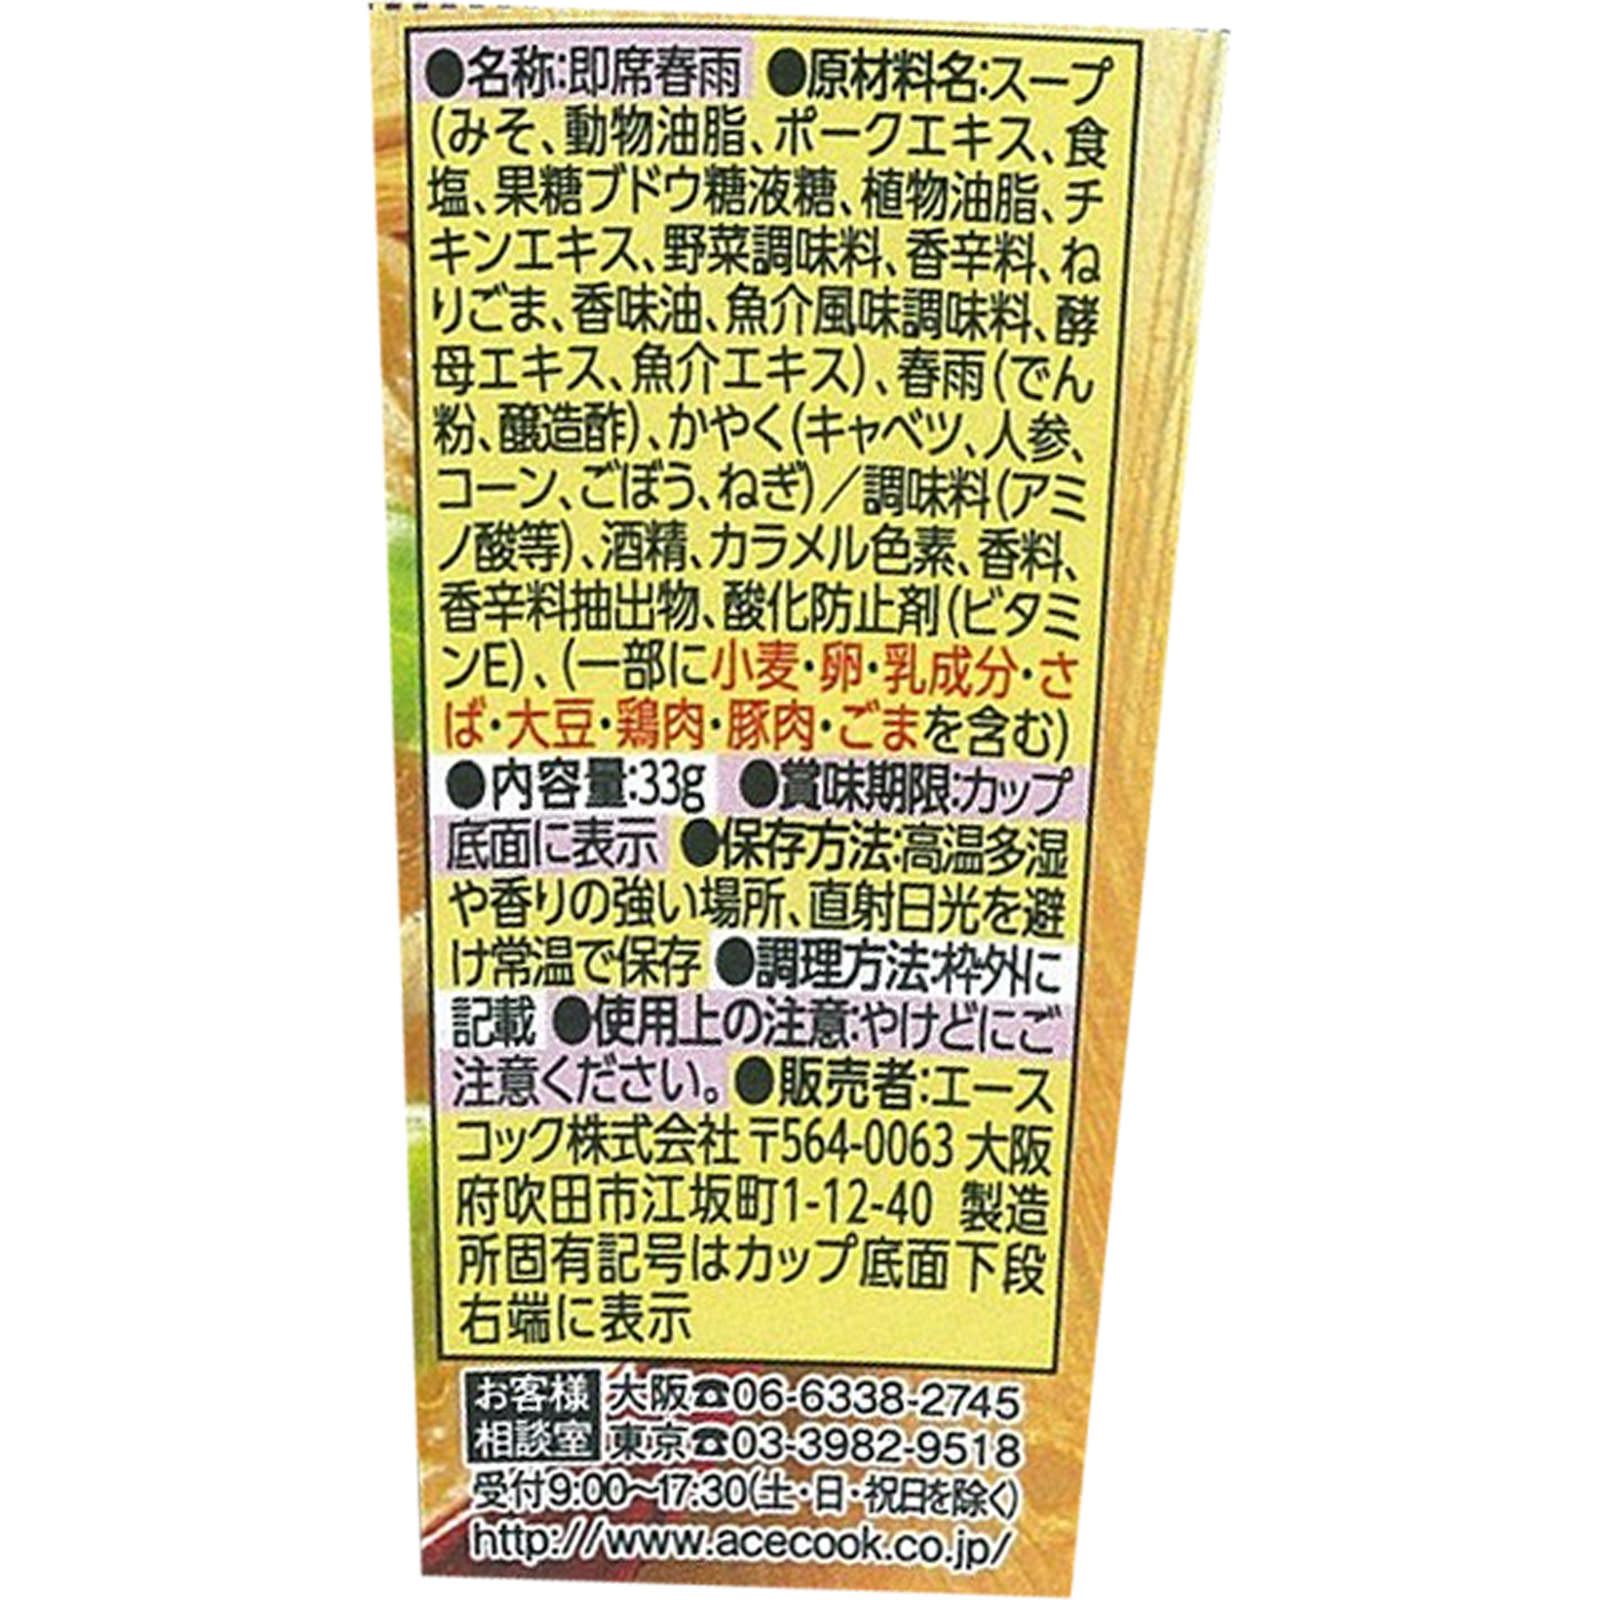 ●名称:即席春雨 ●原材料名:スープ
(みそ、動物油脂、ポークエキス、食
塩、果糖ブドウ糖液糖、植物油脂、チ
キンエキス、野菜調味料、香辛料、ね
りごま、香味油、魚介風味調味料、酵
母エキス、魚介エキス)、春雨(でん
粉、醸造酢)、かやく(キャベツ、人参、
コーン、ごぼう、ねぎ)／調味料(アミ
ノ酸等)、酒精、カラメル色素、香料、
香辛料抽出物、酸化防止剤(ビタミ
ンE)、(一部に小麦・卵・乳成分・さ
ば・大豆・鶏肉・豚肉・ごまを含む)
●内容量:33g ●賞味期限:カップ
底面に表示 ●保存方法:高温多湿
や香りの強い場所、直射日光を避
け常温で保存 ●調理方法:枠外に
記載 ●使用上の注意:やけどにご
注意ください。 ●販売者:エース
コック株式会社 〒564-0063 大阪
府吹田市江坂町1-12-40 製造
所固有記号はカップ底面下段
右端に表示
お客様 大阪☎06-6338-2745
相談室 東京☎03-3982-9518
受付9:00〜17:30(土・日・祝日を除く)
http://www.acecook.co.jp/